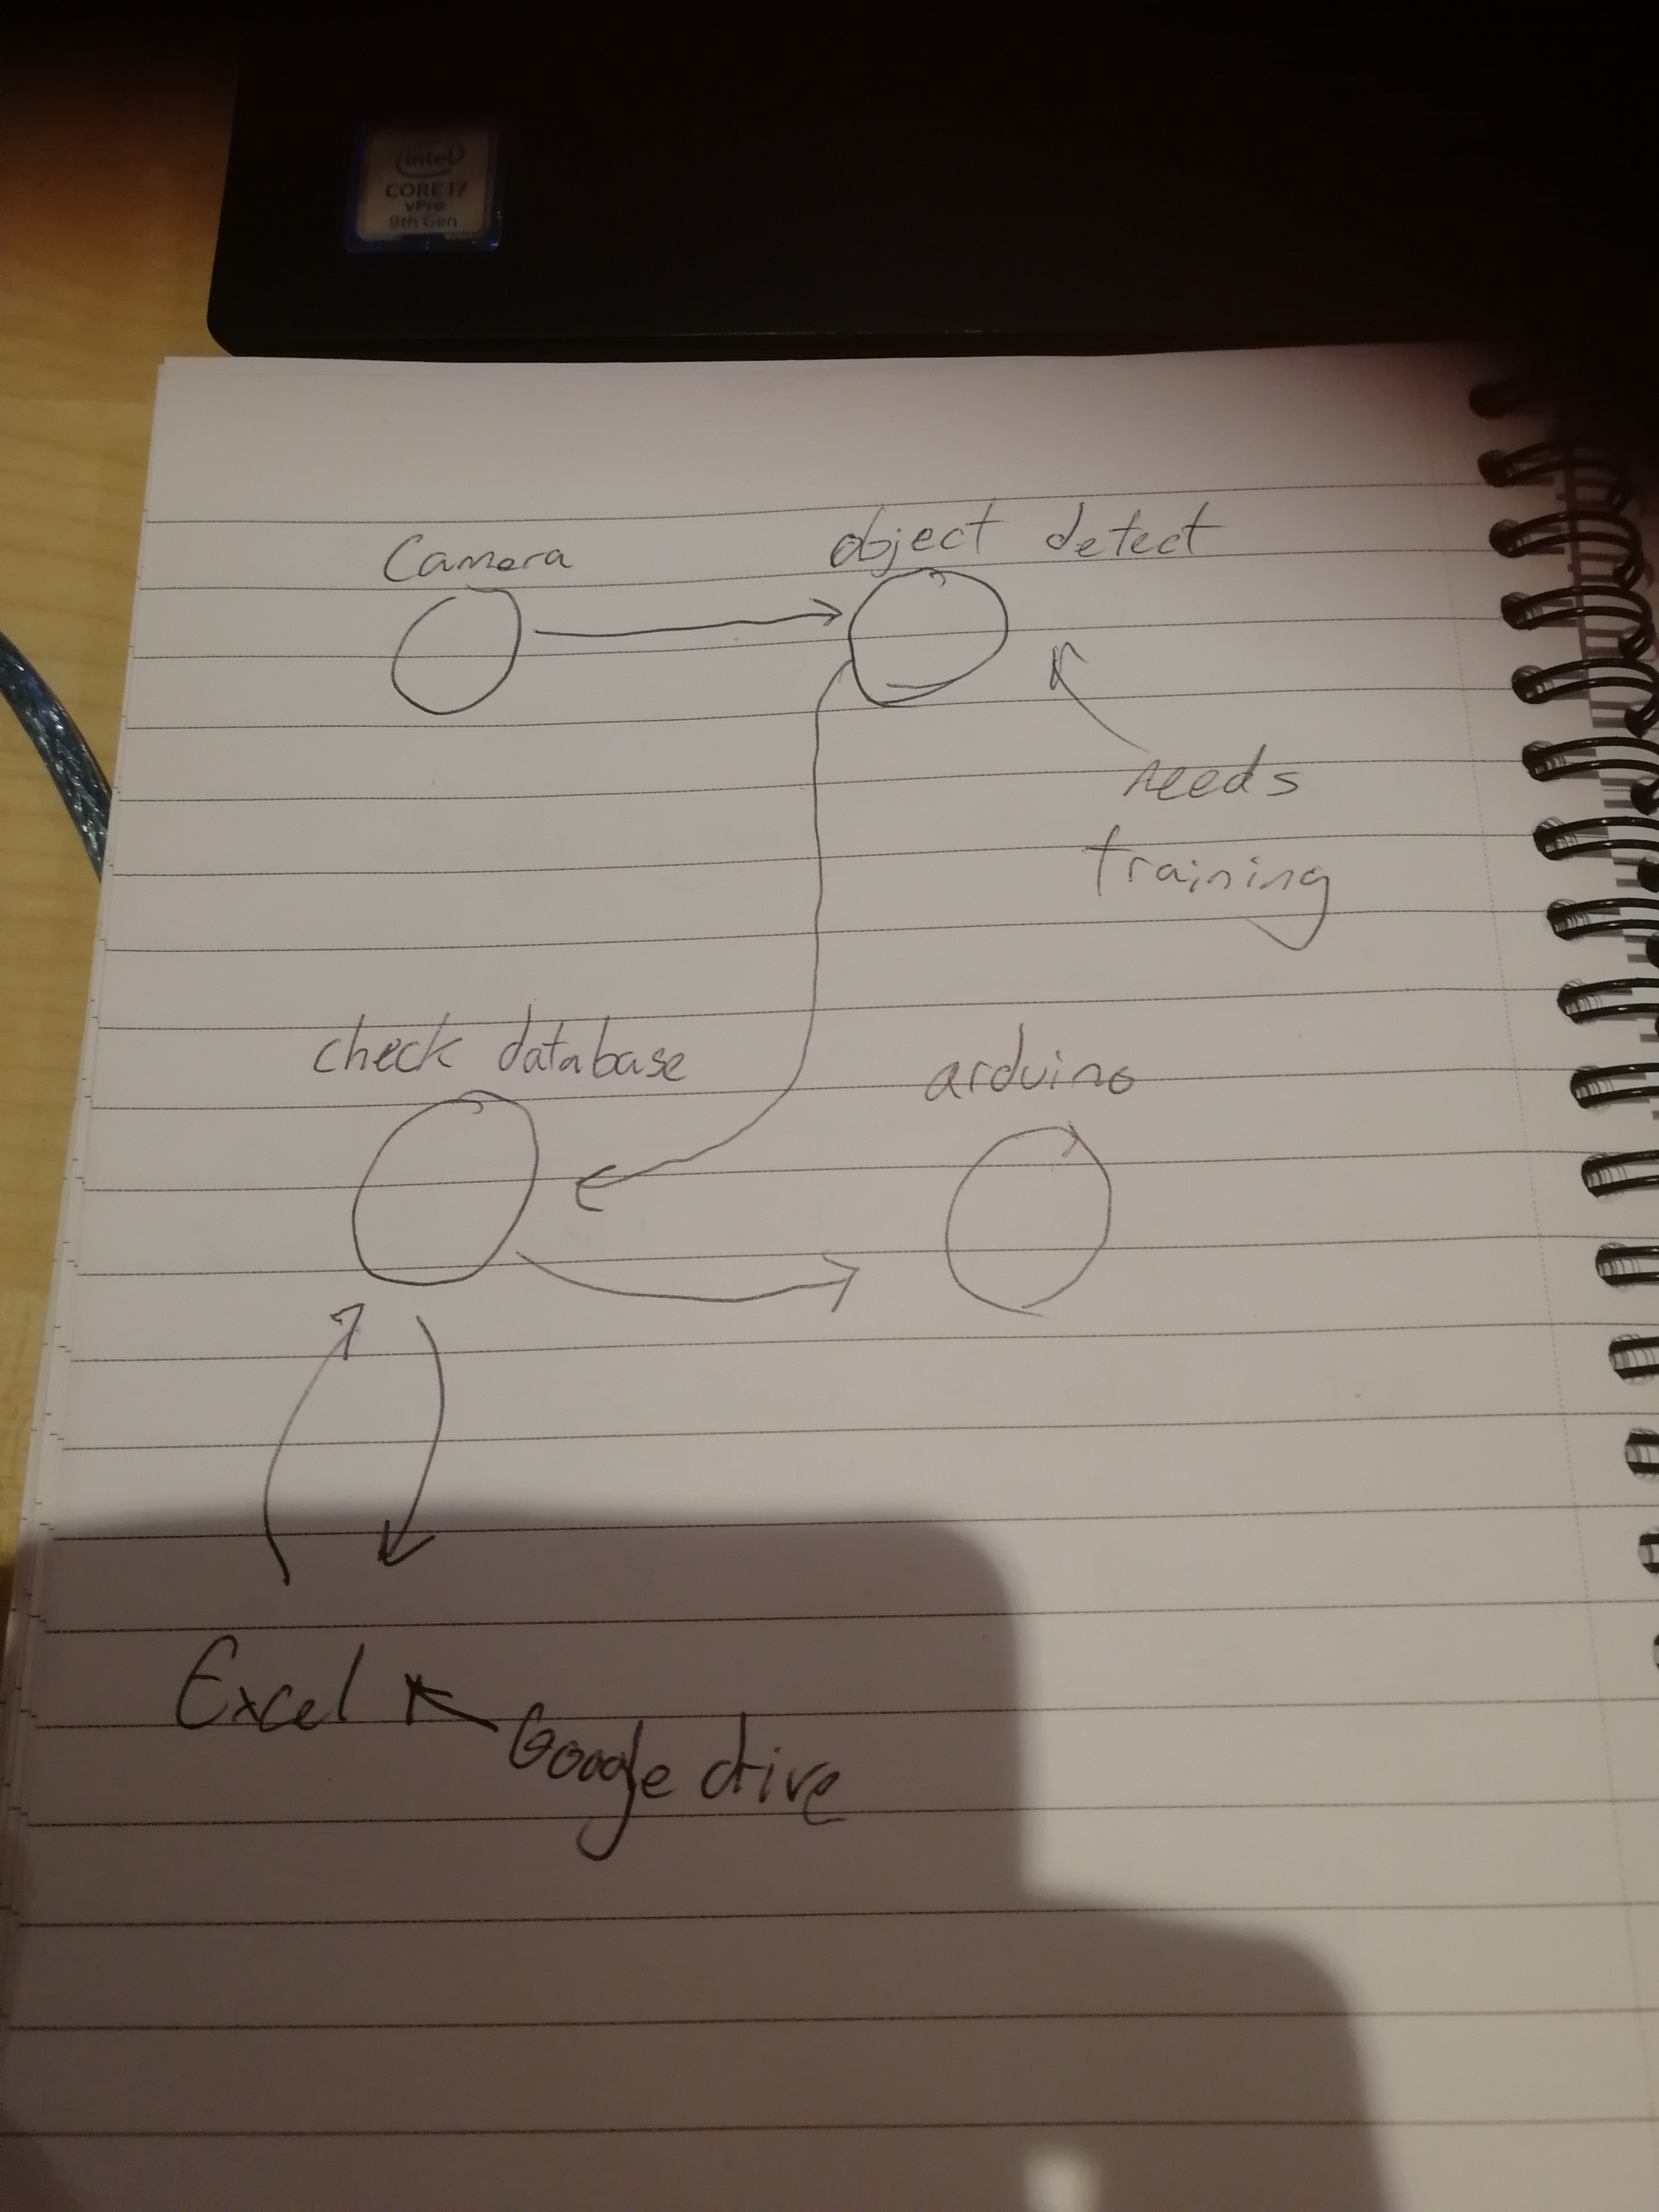 intel
CORE i7
vPro
9th Gen
Camera
object detect
needs
training
check database
arduino
Excel
Google drive